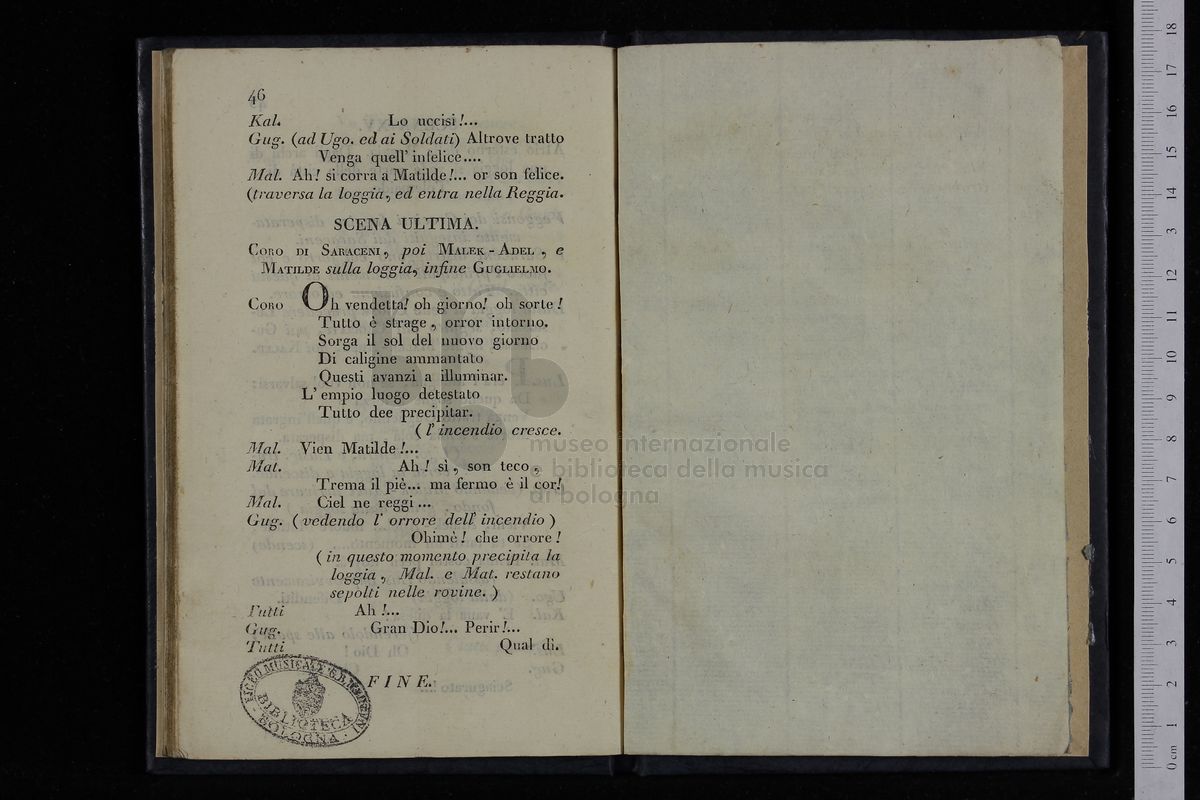 46
Kal. Lo uccisi!...
Gug. (ad Ugo. ed ai Soldati) Altrove tratto
Venga quell' infelice....
Mal. Ah! si corra a Matilde!... or son felice.
(traversa la loggia, ed entra nella Reggia.
SCENA ULTIMA.
CORO DI SARACENI, poi MALEK-ADEL, e
MATILDE sulla loggia, infine GUGLIELMO.
CORO Oh vendetta! oh giorno! oh sorte!
Tutto è strage, orror intorno.
Sorga il sol del nuovo giorno
Di caligine ammantato
Questi avanzi a illuminar.
L' empio luogo detestato
Tutto dee precipitar.
(l' incendio cresce.
Mal. Vien Matilde!...
Mat. Ah! sì, son teco,
Trema il piè... ma fermo è il cor!
Mal. Ciel ne reggi...
Gug. (vedendo l' orrore dell' incendio)
Ohimè! che orrore!
(in questo momento precipita la
loggia, Mal. e Mat. restano
sepolti nelle rovine.)
Tutti Ah!...
Gug. Gran Dio!... Perir!...
Tutti Qual dì.
FINE.
LICEO MUSICALE G.B. MARTINI
BIBLIOTECA
BOLOGNA
museo internazionale
e biblioteca della musica
di bologna
0 cm 1 2 3 4 5 6 7 8 9 10 11 12 13 14 15 16 17 18